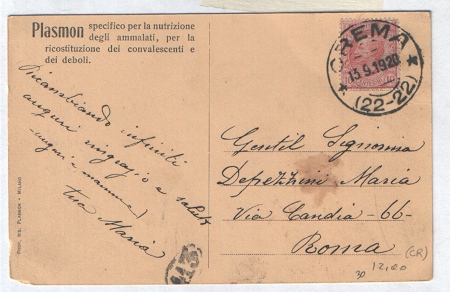 Plasmon specifico per la nutrizione
degli ammalati, per la
ricostituzione dei convalescenti e
dei deboli.
CREMA
13.9.1920
(22-22)
Ricambiando infiniti
auguri ringrazio e saluto
mamma
tua Maria
Gentil Signorina
Depezzini Maria
Via Candia - 66 -
Roma
(CR)
30 12,00
PROP. RIS. PLASMON - MILANO